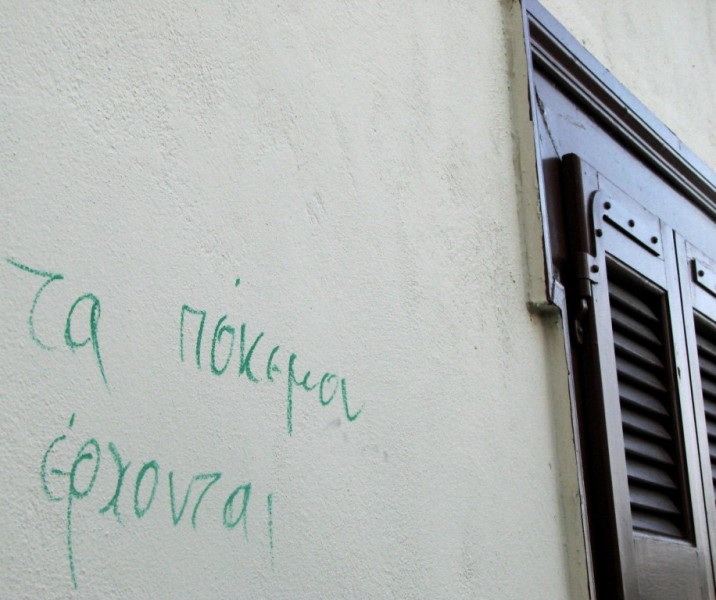 τα πόκεμον
έρχονται